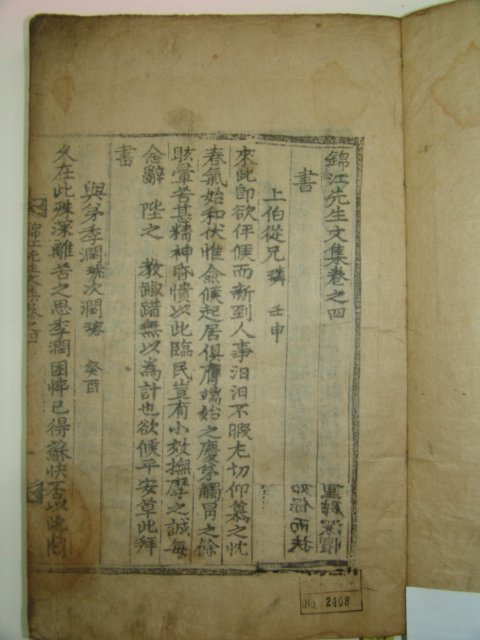 錦江先生文集卷之四
書
上伯從兄璘 壬申
來此卽欲伻候而新到人事汨汨不暇尢切仰慕之忱
春氣始和伏惟僉候起居俱膺端始之慶弟觸冒之餘
眩暈苦甚精神昏憒以此臨民豈有小效撫摩之誠每
念辭 陛之 教踧踖無以為計也欲候平安草此拜
書
與弟季潤琥次潤 癸酉
久在此殊深離苦之思季潤困悴已得蘇快否以時
錦江先生文集卷之四
如 而扶
No. 2408